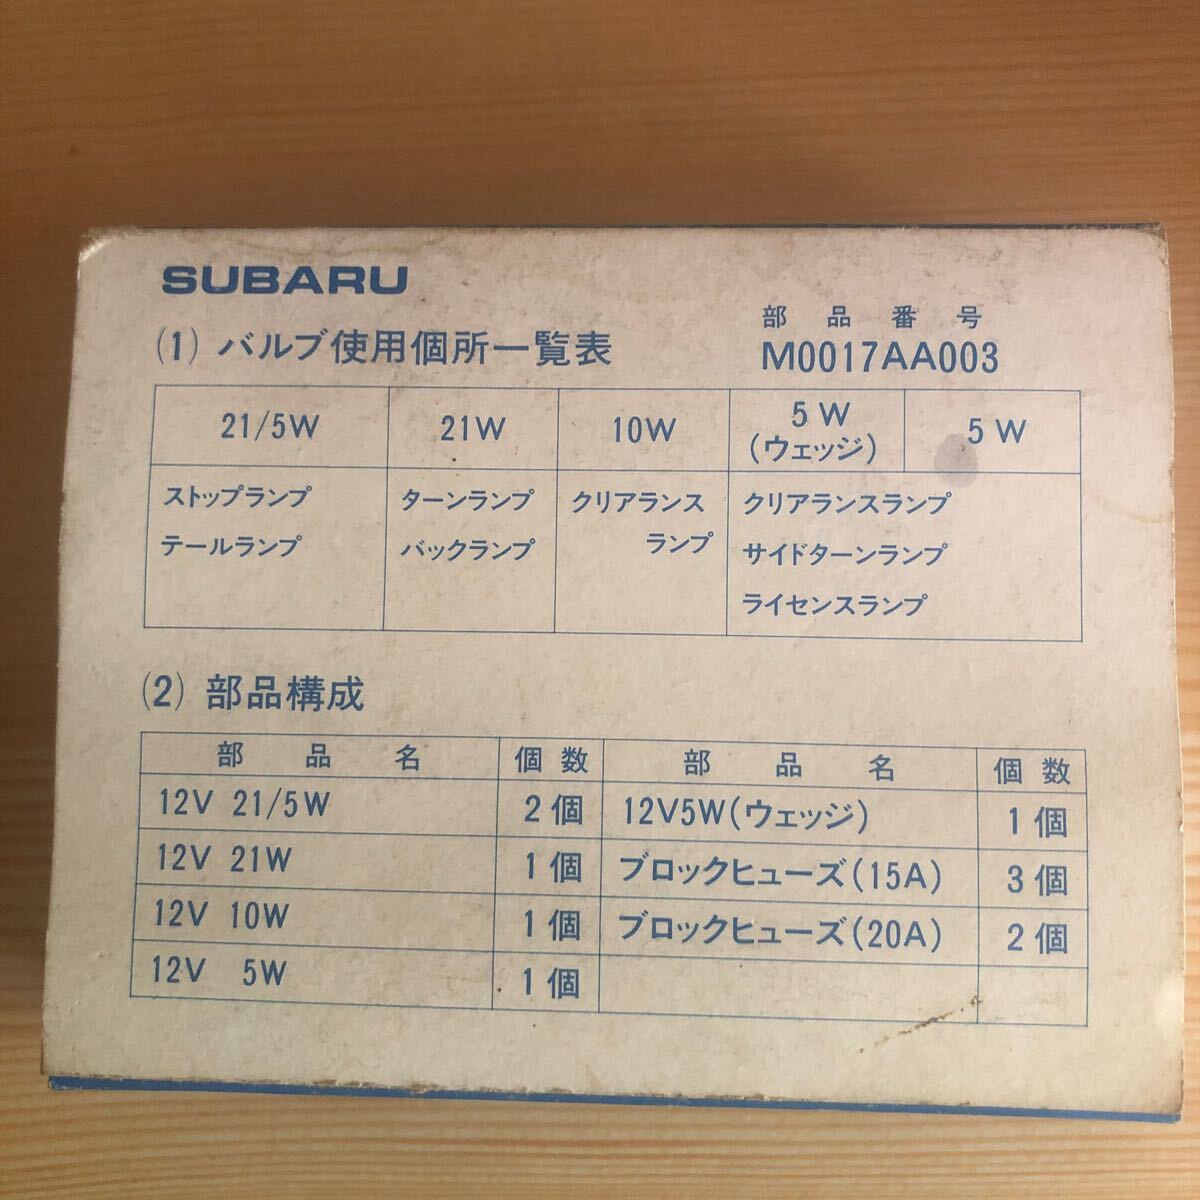 SUBARU
(1) バルブ使用個所一覧表
部品番号
M0017AA003
21/5W 21W 10W 5W (ウェッジ) 5W
ストップランプ
テールランプ
ターンランプ
バックランプ
クリアランス
ランプ
クリアランスランプ
サイドターンランプ
ライセンスランプ
(2) 部品構成
部品名 個数 部品名 個数
12V 21/5W 2個 12V5W(ウェッジ) 1個
12V 21W 1個 ブロックヒューズ(15A) 3個
12V 10W 1個 ブロックヒューズ(20A) 2個
12V 5W 1個